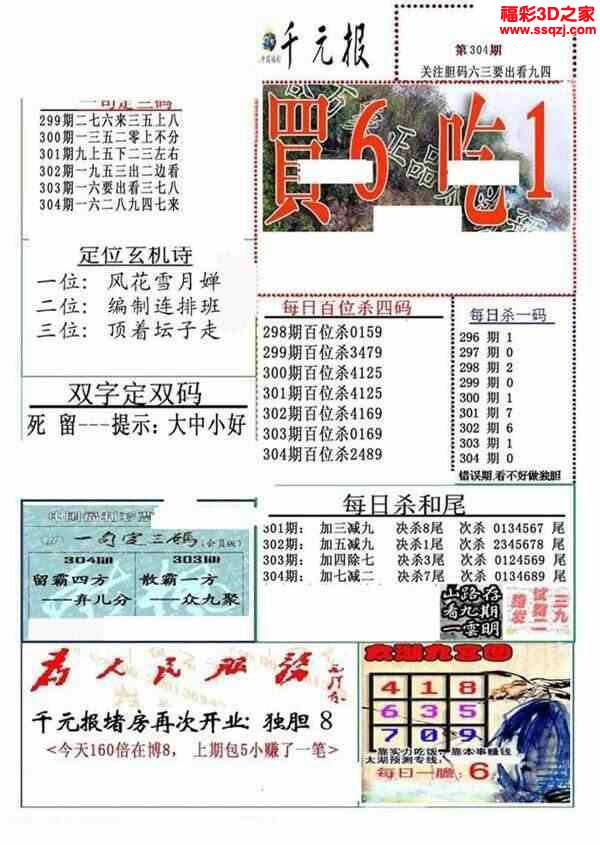 福彩3D之家
www.ssqzj.com
千元报
第304期
关注胆码六三要出看九四
一句定三码
299期二七六来三五上八
300期一三五二零上不分
301期九上五下二三左右
302期一九五三出二边看
303期一六要出看三七八
304期一六二八九四七来
買6吃1
定位玄机诗
一位: 风花雪月婵
二位: 编制连排班
三位: 顶着坛子走
双字定双码
死 留---提示: 大中小好
每日百位杀四码
298期百位杀0159
299期百位杀3479
300期百位杀4125
301期百位杀4125
302期百位杀4169
303期百位杀0169
304期百位杀2489
每日杀一码
296 期 1
297 期 0
298 期 2
299 期 0
300 期 1
301 期 7
302 期 6
303 期 1
304 期 0
错误期,看不好做独胆
一句定三码(会员版)
304期
留霸四方
——弃儿分
303期
散霸一方
——众九聚
每日杀和尾
301期: 加三减九 决杀8尾 次杀 0134567 尾
302期: 加五减九 决杀1尾 次杀 2345678 尾
303期: 加四除七 决杀3尾 次杀 0124569 尾
304期: 加七减二 决杀7尾 次杀 0134689 尾
山路存
看九期
一雲明
为人民服务
千元报堵房再次开业: 独胆 8
<今天160倍在博8, 上期包5小赚了一笔>
太湖九宫图
4 1 8
6 3 5
7 0 9
靠实力吃饭,靠本事赚钱
太湖预测专线:
每日一胆: 6